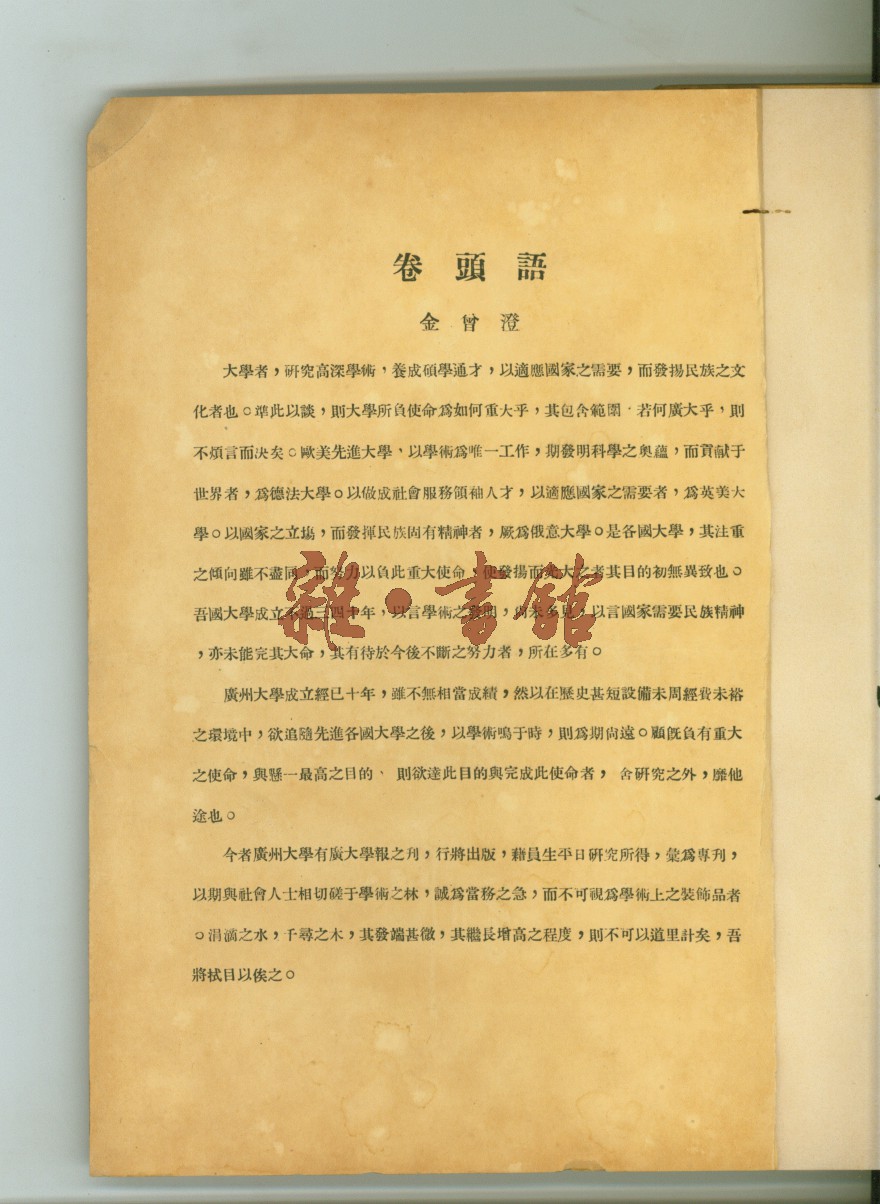 卷頭語
金曾澄
大學者，研究高深學術，養成碩學通才，以適應國家之需要，而發揚民族之文
化者也。準此以談，則大學所負使命爲如何重大乎，其包含範圍，若何廣大乎，則
不煩言而决矣。歐美先進大學、以學術爲唯一工作，期發明科學之奧蘊，而貢献于
世界者，爲德法大學。以做成社會服務領袖人才，以適應國家之需要者，爲英美大
學。以國家之立塲，而發揮民族固有精神者，厥爲俄意大學。是各國大學，其注重
之傾向雖不盡同，而努力以負此重大使命，使發揚而光大之者其目的初無異致也。
吾國大學成立不過三四十年，以言學術之發明，尚未多見，以言國家需要民族精神
，亦未能完其大命，其有待於今後不斷之努力者，所在多有。
廣州大學成立經已十年，雖不無相當成績，然以在歷史甚短設備未周經費未裕
之環境中，欲追隨先進各國大學之後，以學術鳴于時，則爲期尙遠。顧旣負有重大
之使命，與懸一最高之目的、則欲達此目的與完成此使命者，舍研究之外，靡他
途也。
今者廣州大學有廣大學報之刊，行將出版，藉員生平日研究所得，彙爲專刊，
以期與社會人士相切磋于學術之林，誠爲當務之急，而不可視爲學術上之裝飾品者
。涓滴之水，千尋之木，其發端甚微，其繼長增高之程度，則不可以道里計矣，吾
將拭目以俟之。
雜·書館